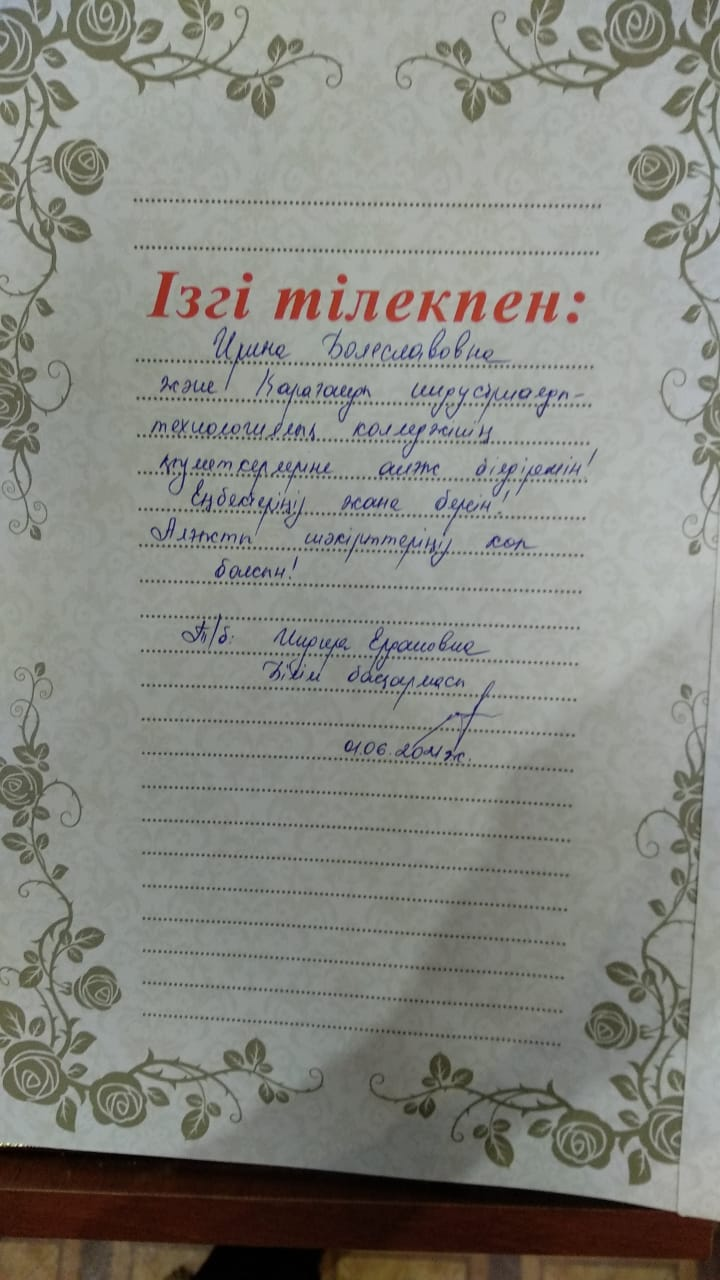 Ізгі тілекпен:
Ирина Болеславовна
және Қарағанды индустриалды-
технологиялық колледжінің
қызметкерлеріне алғыс білдіремін!
Еңбектеріңіз жана берсін!
Алғысты шәкірттеріңіз көп
болсын!
Т/б: Ердановна
Білім басқармасы
01.06.2021ж.